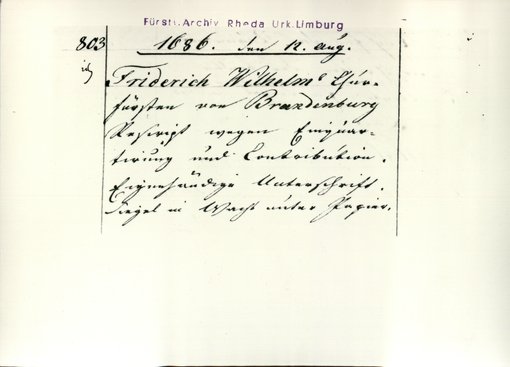 Fürstl. Archiv Rheda Urk. Limburg
803
1686. den 12. Aug.
Friderich Wilhelms Chur-
fürsten von Brandenburg
Rescript wegen Einquar-
tirung und Contribution.
Eigenhändige Unterschrift.
Siegel in Wachs unter Papier.